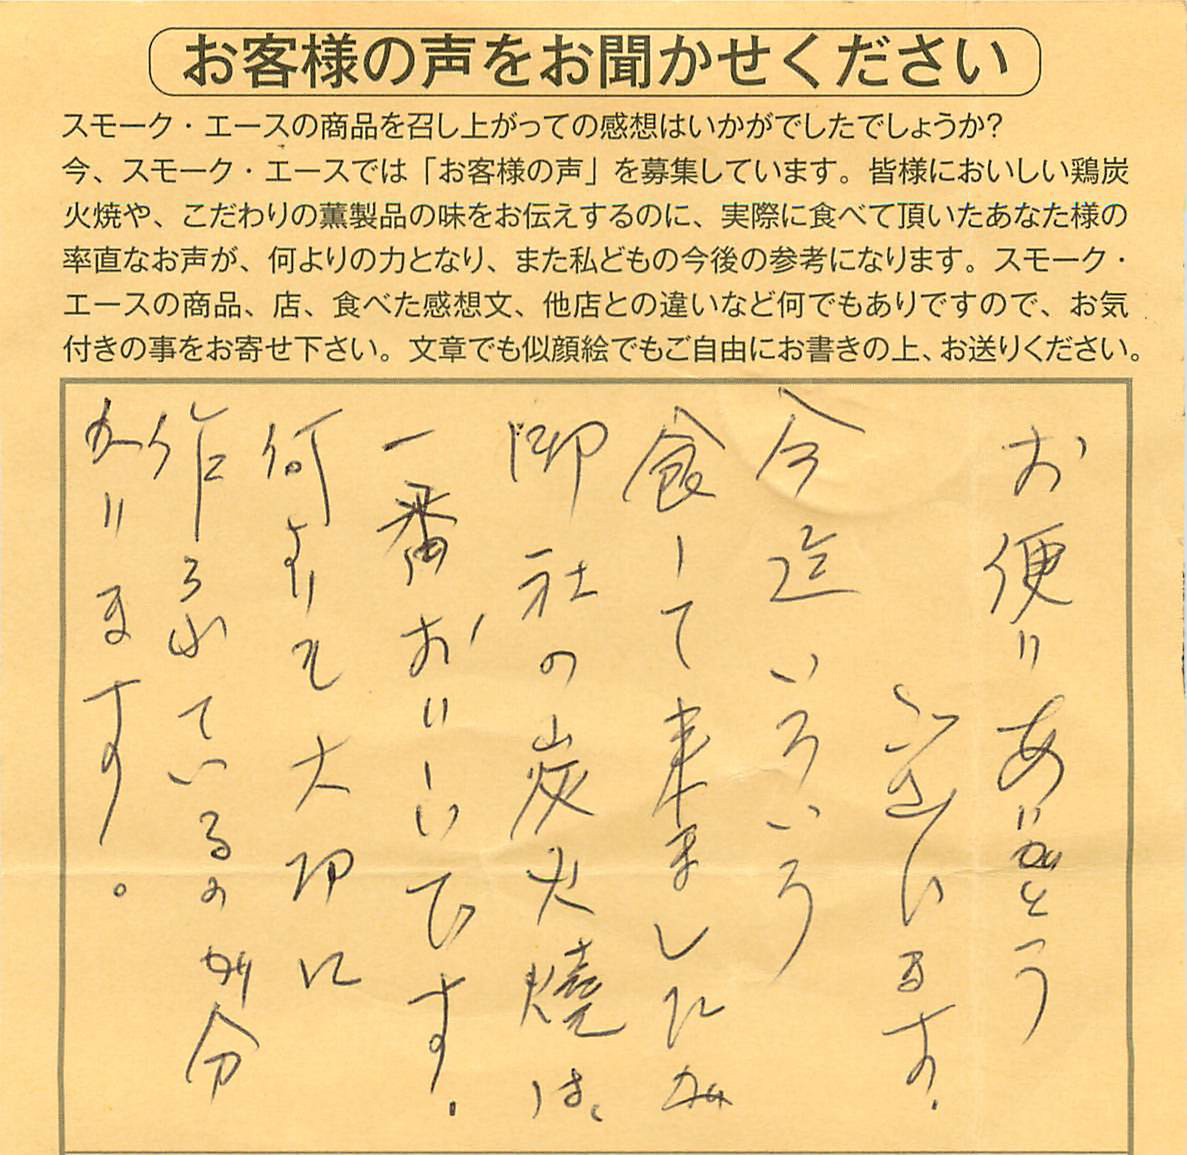 お客様の声をお聞かせください
スモーク・エースの商品を召し上がっての感想はいかがでしたでしょうか?
今、スモーク・エースでは「お客様の声」を募集しています。皆様においしい鶏炭
火焼や、こだわりの薫製品の味をお伝えするのに、実際に食べて頂いたあなた様の
率直なお声が、何よりの力となり、また私どもの今後の参考になります。スモーク・
エースの商品、店、食べた感想文、他店との違いなど何でもありですので、お気
付きの事をお寄せ下さい。文章でも似顔絵でもご自由にお書きの上、お送りください。
お便りありがとう
ございます.
今迄いろいろ
食して来ましたが
御社の炭火焼は、
一番おいしいです.
何よりも大切に
作られているのが分
かります。